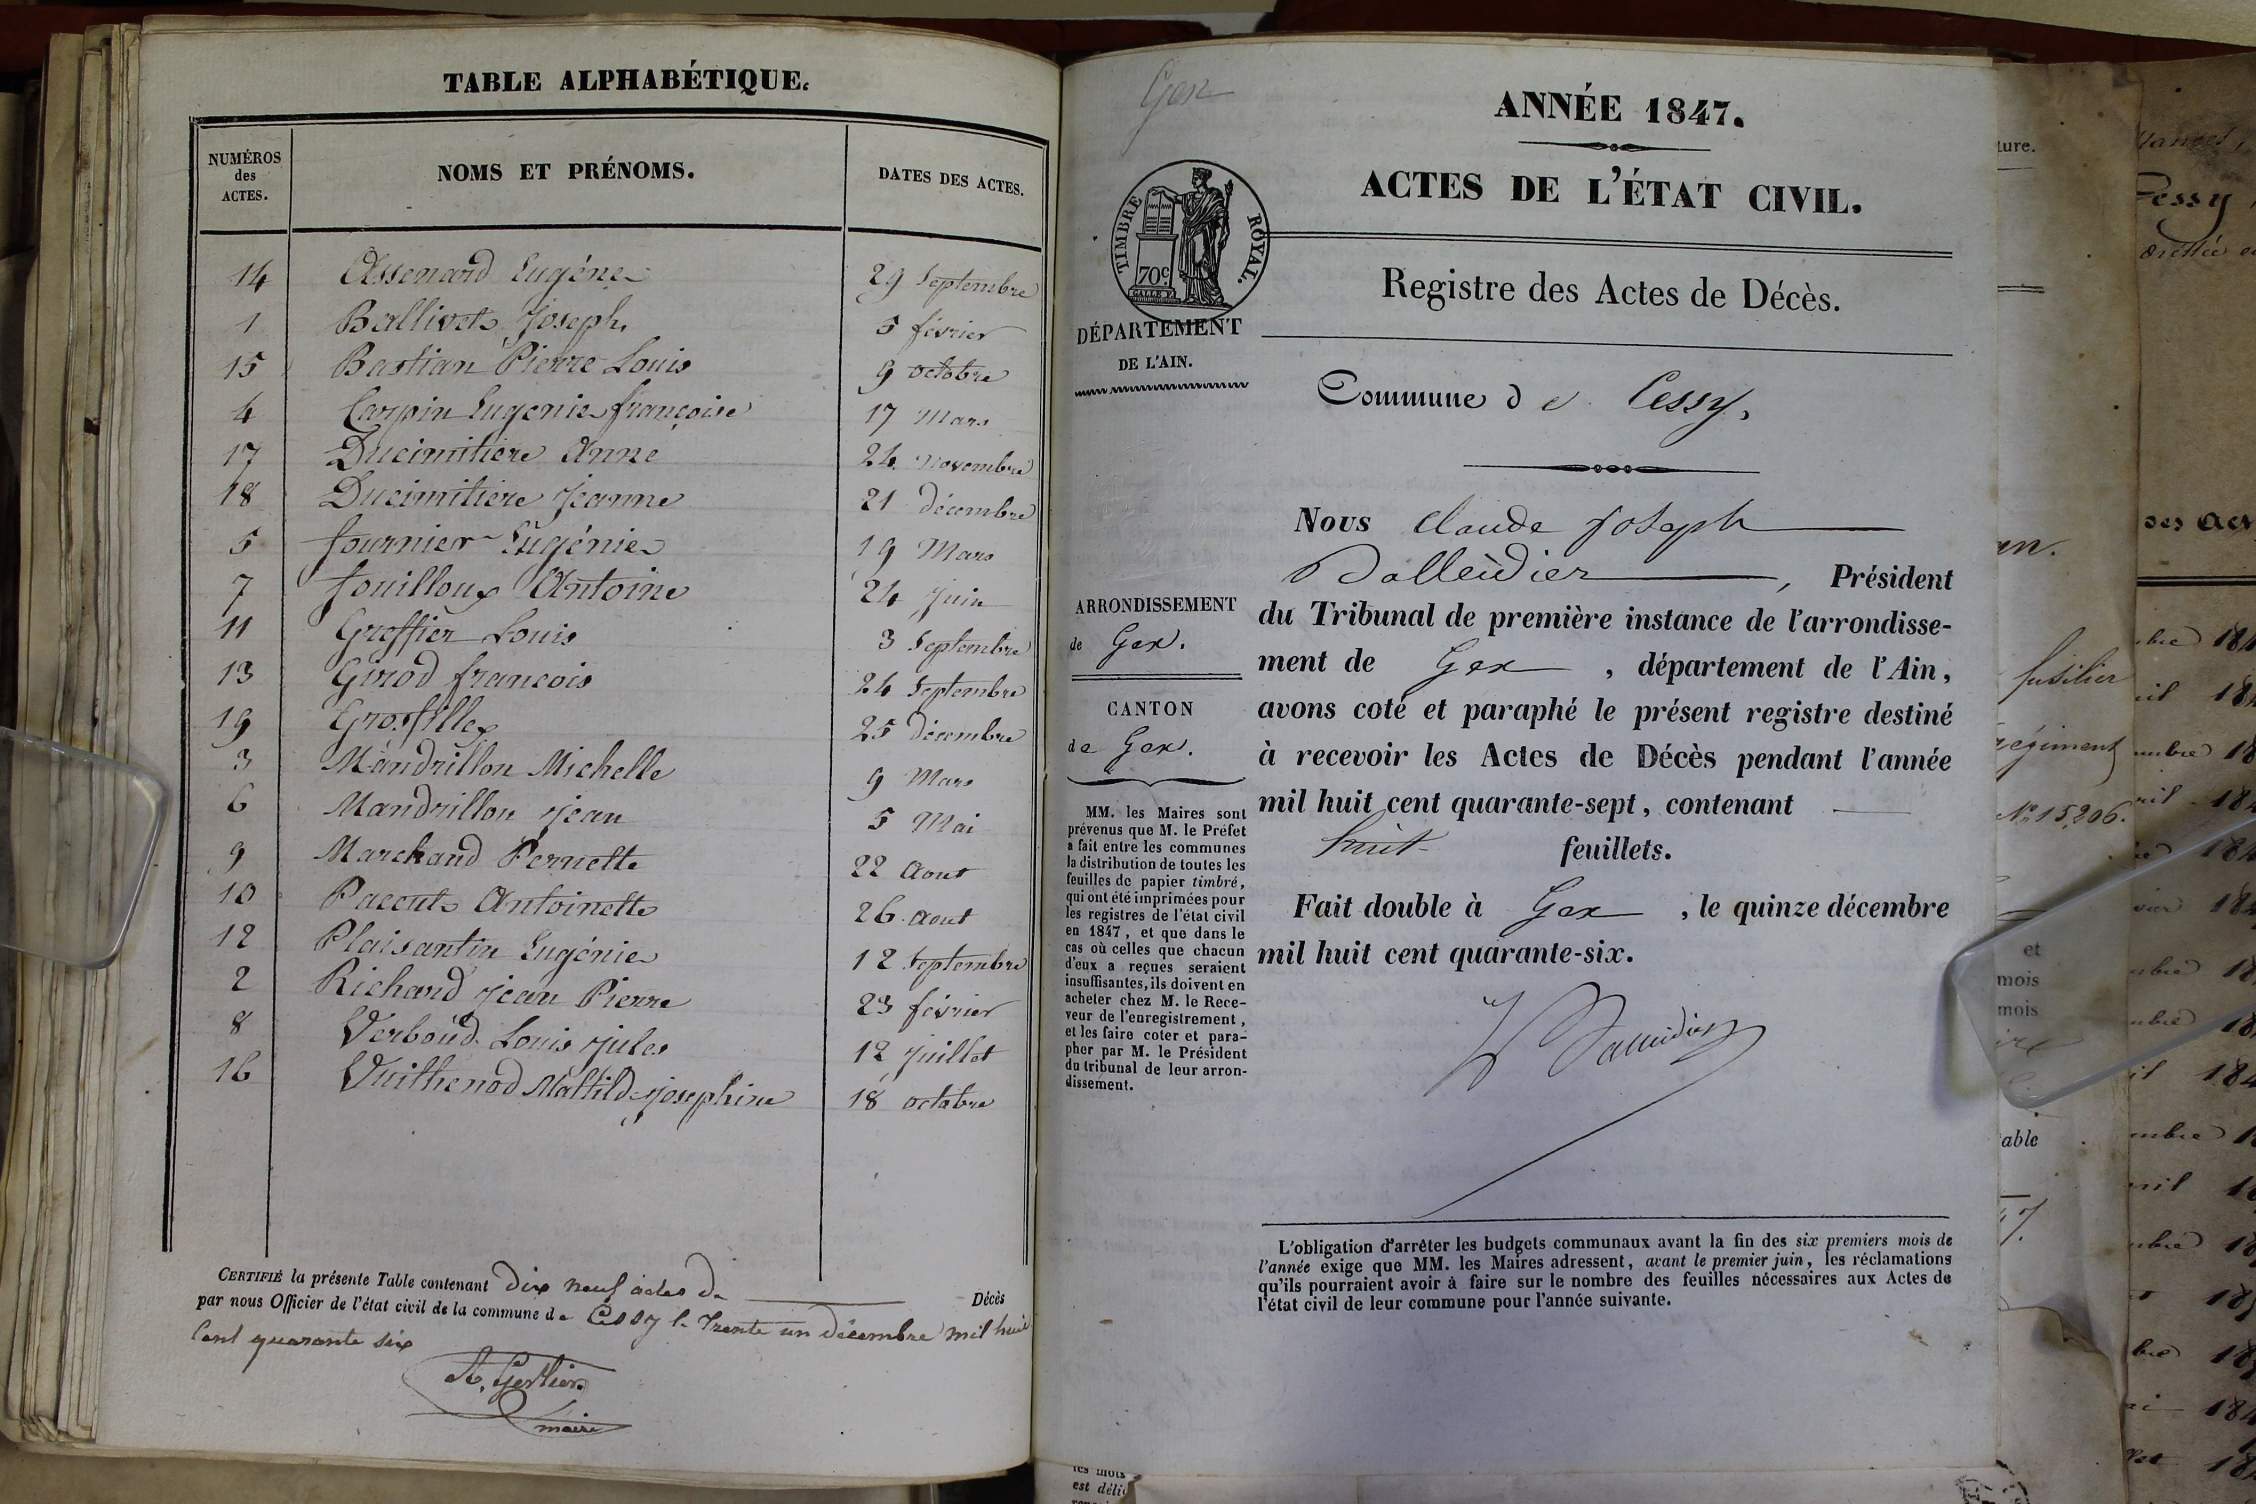 TABLE ALPHABÉTIQUE.
NUMÉROS des ACTES. NOMS ET PRÉNOMS. DATES DES ACTES.
14 Assenard Eugéne 29 Septembre
1 Ballivet Joseph 5 février
15 Bastian Pierre Louis 9 octobre
4 Carpin Eugenie françoise 17 Mars
17 Ducimitière Anne 24 Novembre
18 Ducimitière Jeanne 21 décembre
5 fournier Eugénie 19 Mars
7 fouilloux Antoine 24 Juin
11 Greffier Louis 3 Septembre
13 Girod francois 24 Septembre
19 Grosfillex 25 décembre
3 Mandrillon Michelle 9 Mars
6 Mandrillon Jean 5 Mai
9 Marchand Pernette 22 Aout
10 Paccut Antoinette 26 Aout
12 Plaisantin Eugénie 12 Septembre
2 Richard Jean Pierre 23 février
8 Verboud Louis Jules 12 Juillet
16 Vuithenod Mathilde Josephine 18 octobre
CERTIFIÉ la présente Table contenant dix neuf actes de Décès
par nous Officier de l'état civil de la commune de Cessy le trente un décembre mil huit
Cent quarante six
Gerlier
maire
Gex
ANNÉE 1847.
ACTES DE L'ÉTAT CIVIL.
TIMBRE ROYAL.
70c
Registre des Actes de Décès.
DÉPARTEMENT
DE L'AIN.
Commune de Cessy.
Nous Claude Joseph
Balleidier, Président
du Tribunal de première instance de l'arrondisse-
ment de Gex, département de l'Ain,
avons coté et paraphé le présent registre destiné
à recevoir les Actes de Décès pendant l'année
mil huit cent quarante-sept, contenant
huit feuillets.
Fait double à Gex, le quinze décembre
mil huit cent quarante-six.
ARRONDISSEMENT
de Gex.
CANTON
de Gex.
MM. les Maires sont
prévenus que M. le Préfet
a fait entre les communes
la distribution de toutes les
feuilles de papier timbré,
qui ont été imprimées pour
les registres de l'état civil
en 1847, et que dans le
cas où celles que chacun
d'eux a reçues seraient
insuffisantes, ils doivent en
acheter chez M. le Rece-
veur de l'enregistrement,
et les faire coter et para-
pher par M. le Président
du tribunal de leur arron-
dissement.
L'obligation d'arrêter les budgets communaux avant la fin des six premiers mois de
l'année exige que MM. les Maires adressent, avant le premier juin, les réclamations
qu'ils pourraient avoir à faire sur le nombre des feuilles nécessaires aux Actes de
l'état civil de leur commune pour l'année suivante.
fusilier
régiment
No 15,206.
et
mois
mois